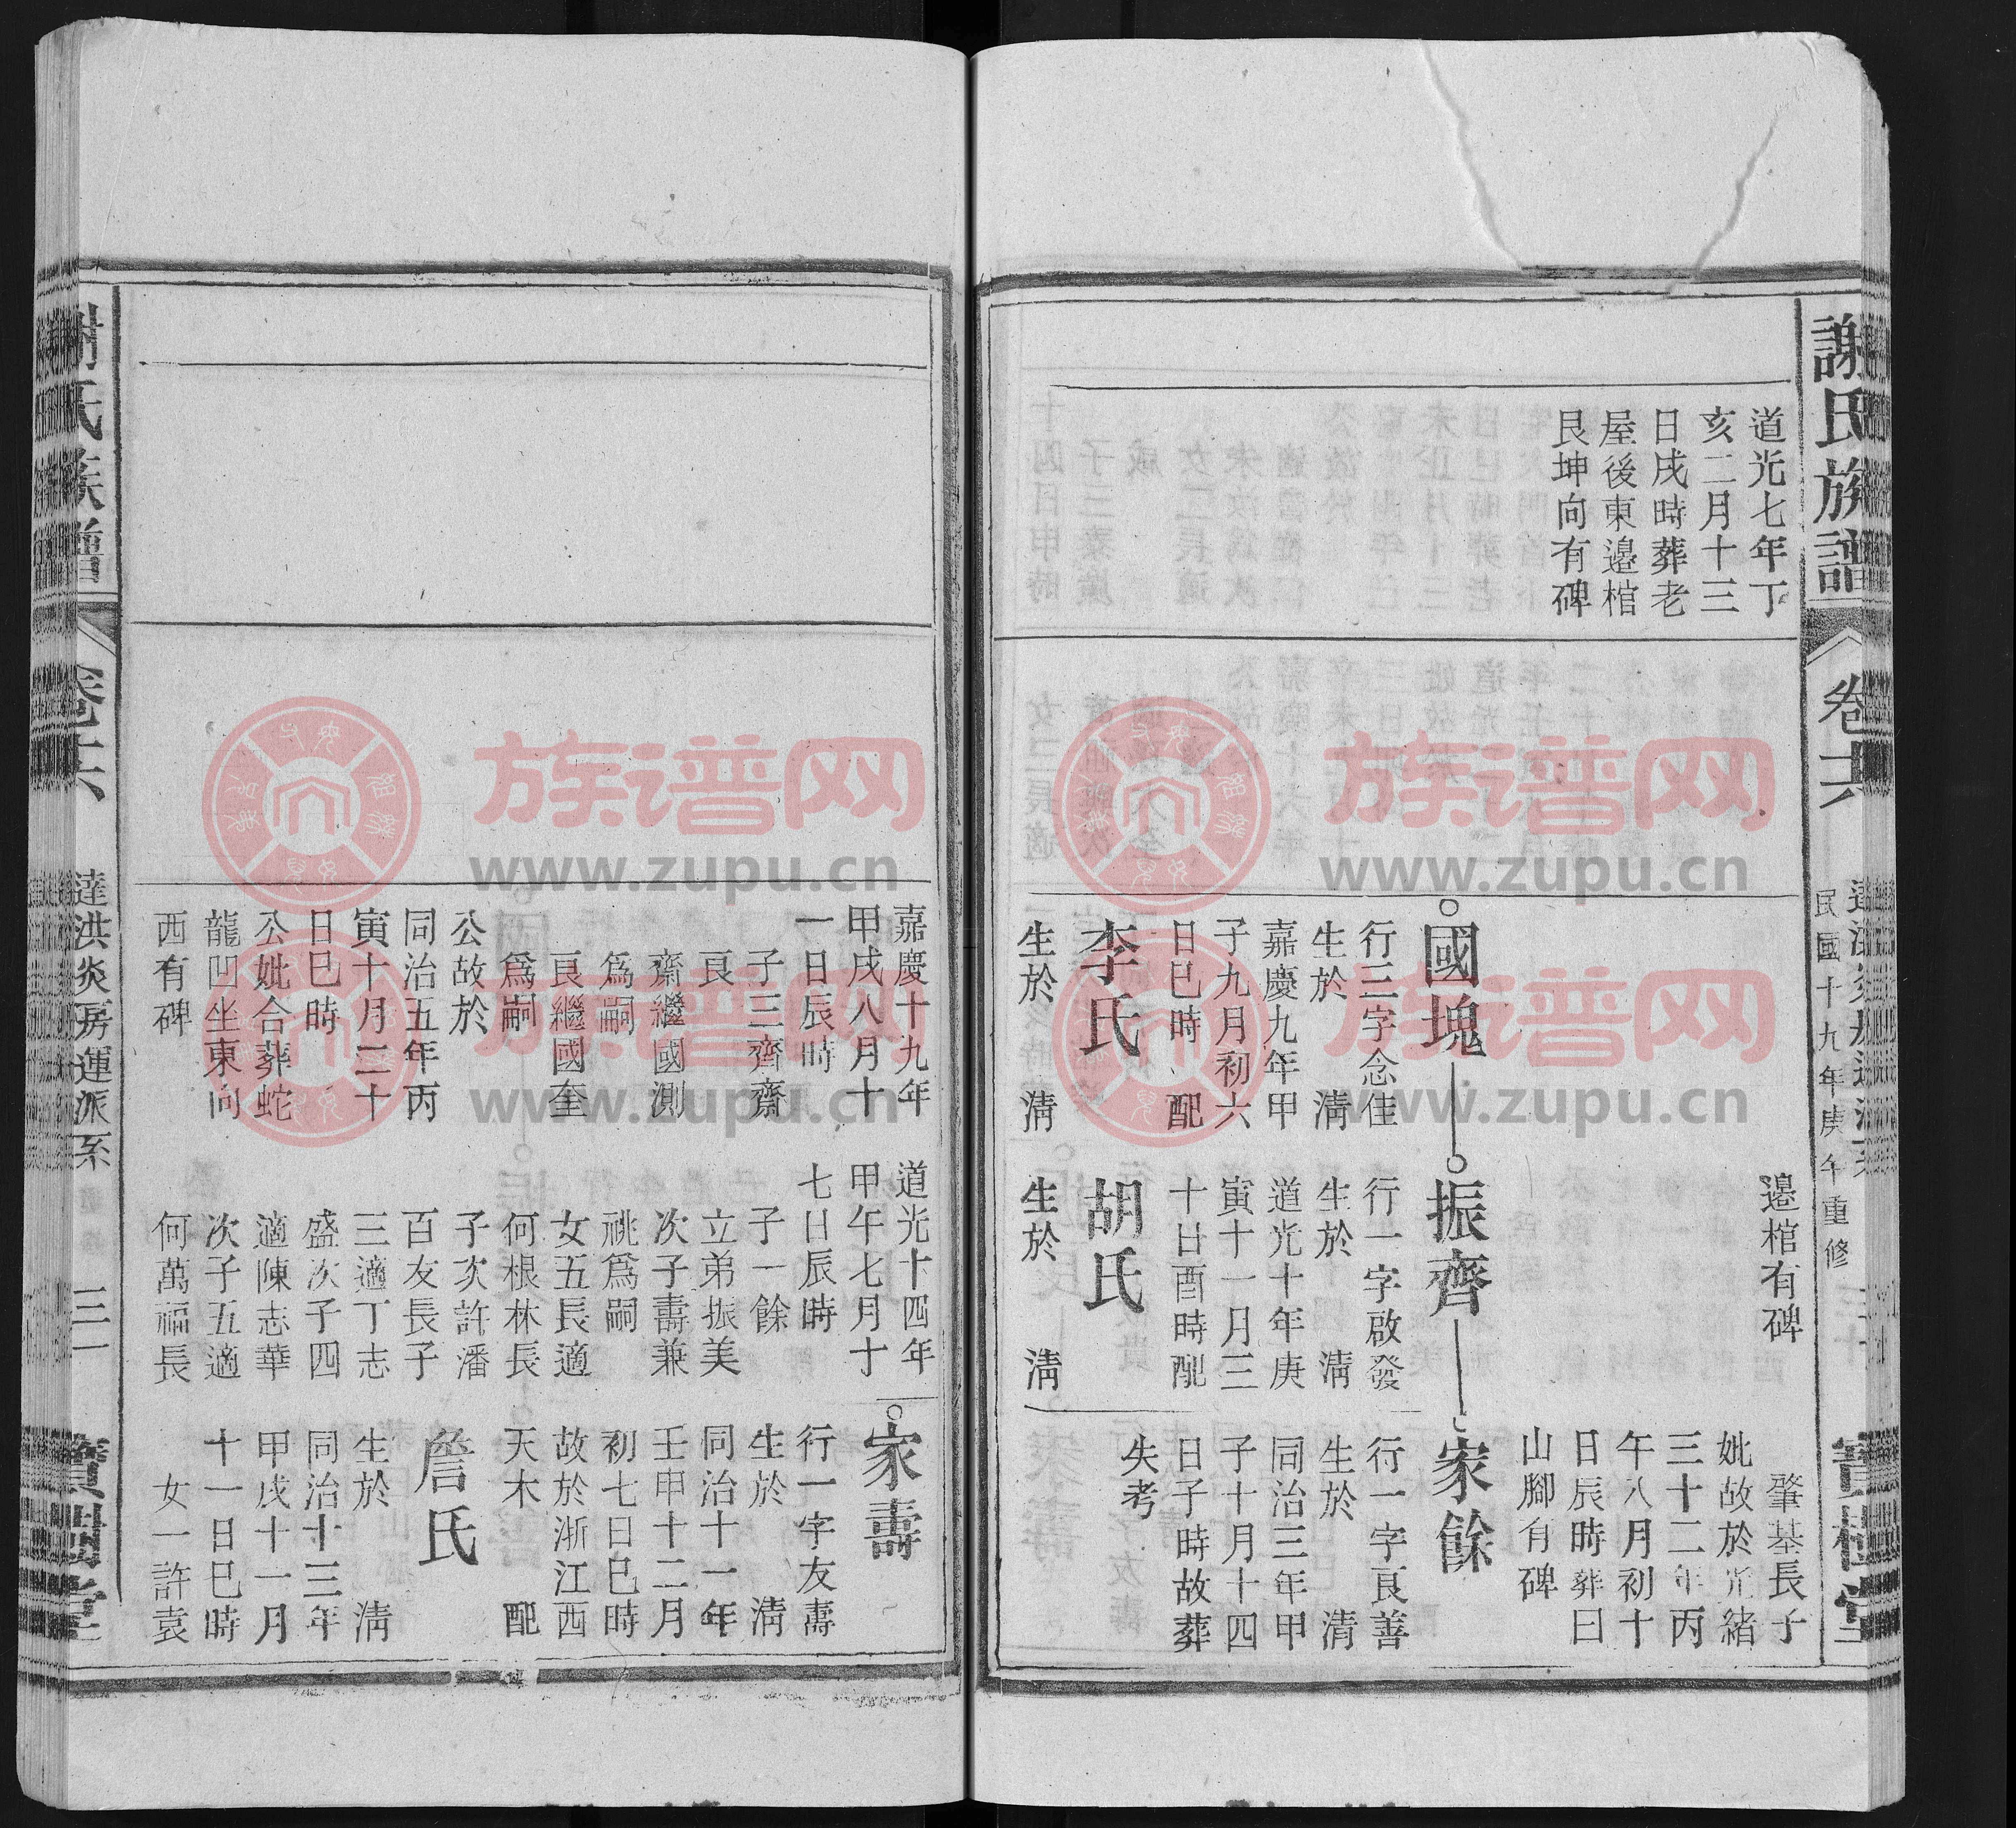 謝氏族譜
卷六
民國十九年庚午重修
道光七年丁
亥二月十三
日戌時葬老
屋後東邉棺
艮坤向有碑
國塊
行三字念佳
生於 淸
嘉慶九年甲
子九月初六
日巳時 配
李氏
生於 淸
邉棺有碑
振齊
行一字啟發
生於 淸
道光十年庚
寅十一月三
十日酉時配
胡氏
生於 淸
肇基長子
妣故於光緒
三十二年丙
午八月初十
日辰時葬曰
山腳有碑
家餘
行一字良善
生於 清
同治三年甲
子十月十四
日子時故葬
失考
嘉慶十九年
甲戌八月十
一日辰時
子三齊齋
良
齋繼國測
為嗣
良繼國奎
為嗣
公故於
同治五年丙
寅十月二十
日巳時
公妣合葬蛇
龍凹坐東向
西有碑
道光十四年
甲午七月十
七日辰時
子一餘
立弟振美
次子壽兼
祧為嗣
女五長適
何根林長
子次許潘
百友長子
三適丁志
盛次子四
適陳志華
次子五適
何萬福長
家壽
行一字友壽
生於 淸
同治十一年
壬申十二月
初七日巳時
故於浙江西
天木 配
詹氏
生於 淸
同治十三年
甲戌十一月
十一日巳時
女一許袁
謝氏族譜
卷六
達洪炎房運派系
三一
寶樹堂
族谱网
www.zupu.cn
族谱网
www.zupu.cn
www.zupu.cn
www.zupu.cn